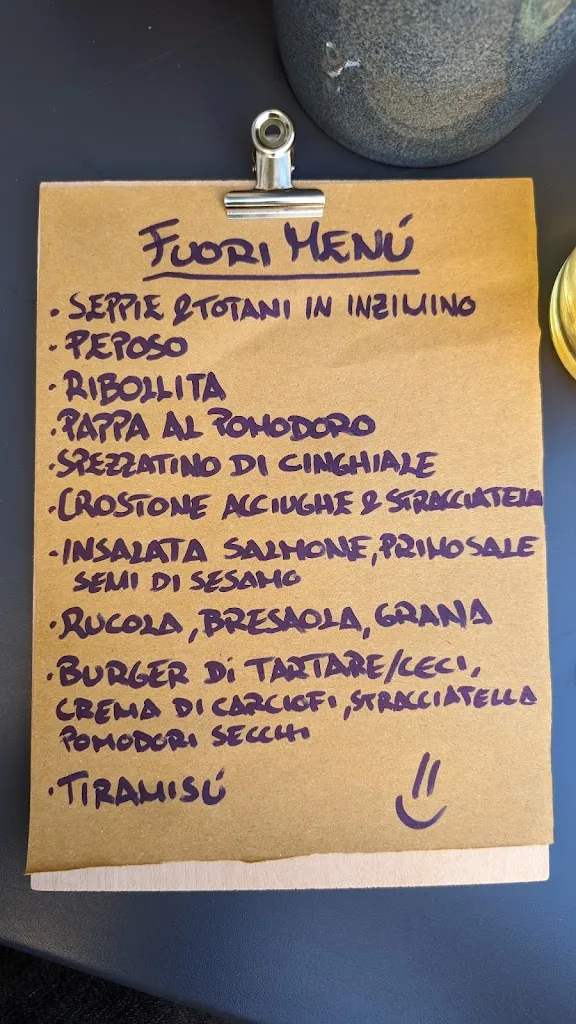 FUORI MENÚ
• SEPPIE & TOTANI IN INZIMINO
• PEPOSO
• RIBOLLITA
• PAPPA AL POMODORO
• SPEZZATINO DI CINGHIALE
• CROSTONE ACCIUGHE & STRACCIATELLA
• INSALATA SALMONE, PRIMOSALE
SEMI DI SESAMO
• RUCOLA, BRESAOLA, GRANA
• BURGER DI TARTARE/CECI,
CREMA DI CARCIOFI, STRACCIATELLA
POMODORI SECCHI
• TIRAMISÚ